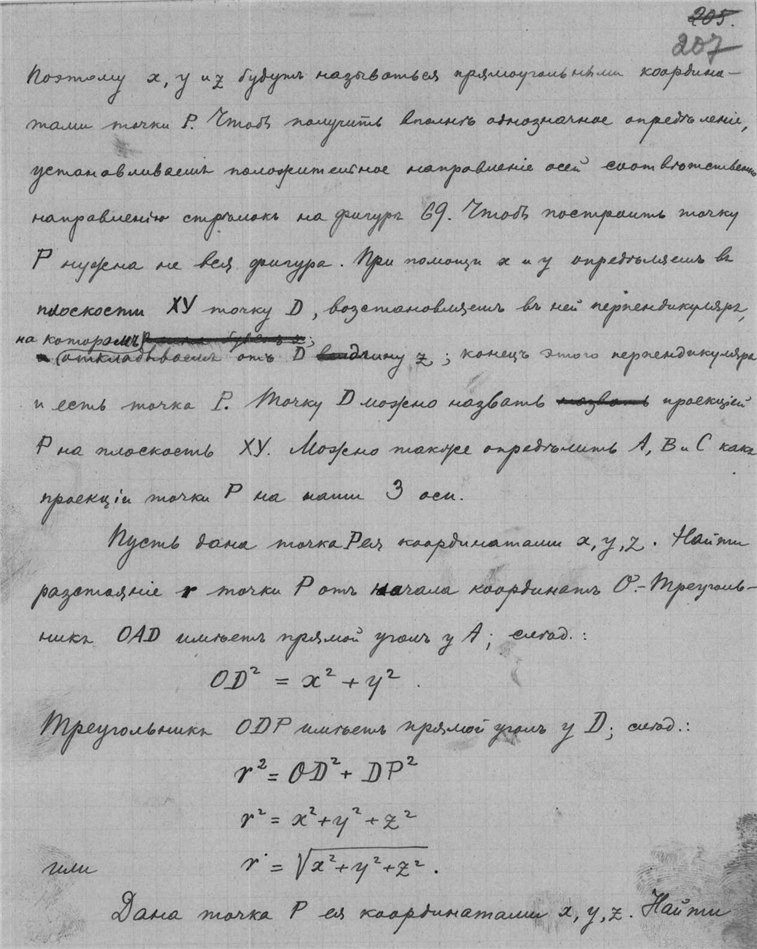 205.
207
Поэтому x, y и z будутъ называться прямоугольными координа-
тами точки P. Чтобъ получить вполнѣ однозначное опредѣленіе,
установливаемъ положительное направленіе осей соотвѣтственно
направленію стрѣлокъ на фигурѣ 69. Чтобъ построить точку
P нужна не вся фигура. При помощи x и y опредѣляемъ въ
плоскости XY точку D, возстановляемъ въ ней перпендикуляръ,
на которомъ
откладываемъ отъ D длину z; конецъ этого перпендикуляра
и есть точка P. Точку D можно назвать назвать проекціей
P на плоскость XY. Можно также опредѣлить A, B и C какъ
проекціи точки P на наши 3 оси.
Пусть дана точка P ея координатами x, y, z. Найти
разстояніе r точки P отъ начала координатъ O. - Треуголь-
никъ OAD имѣетъ прямой уголъ у A; слѣд.:
OD² = x² + y².
Треугольникъ ODP имѣетъ прямой уголъ у D; слѣд.:
r² = OD² + DP²
r² = x² + y² + z²
или r = √x² + y² + z².
Дана точка P ея координатами x, y, z. Найти